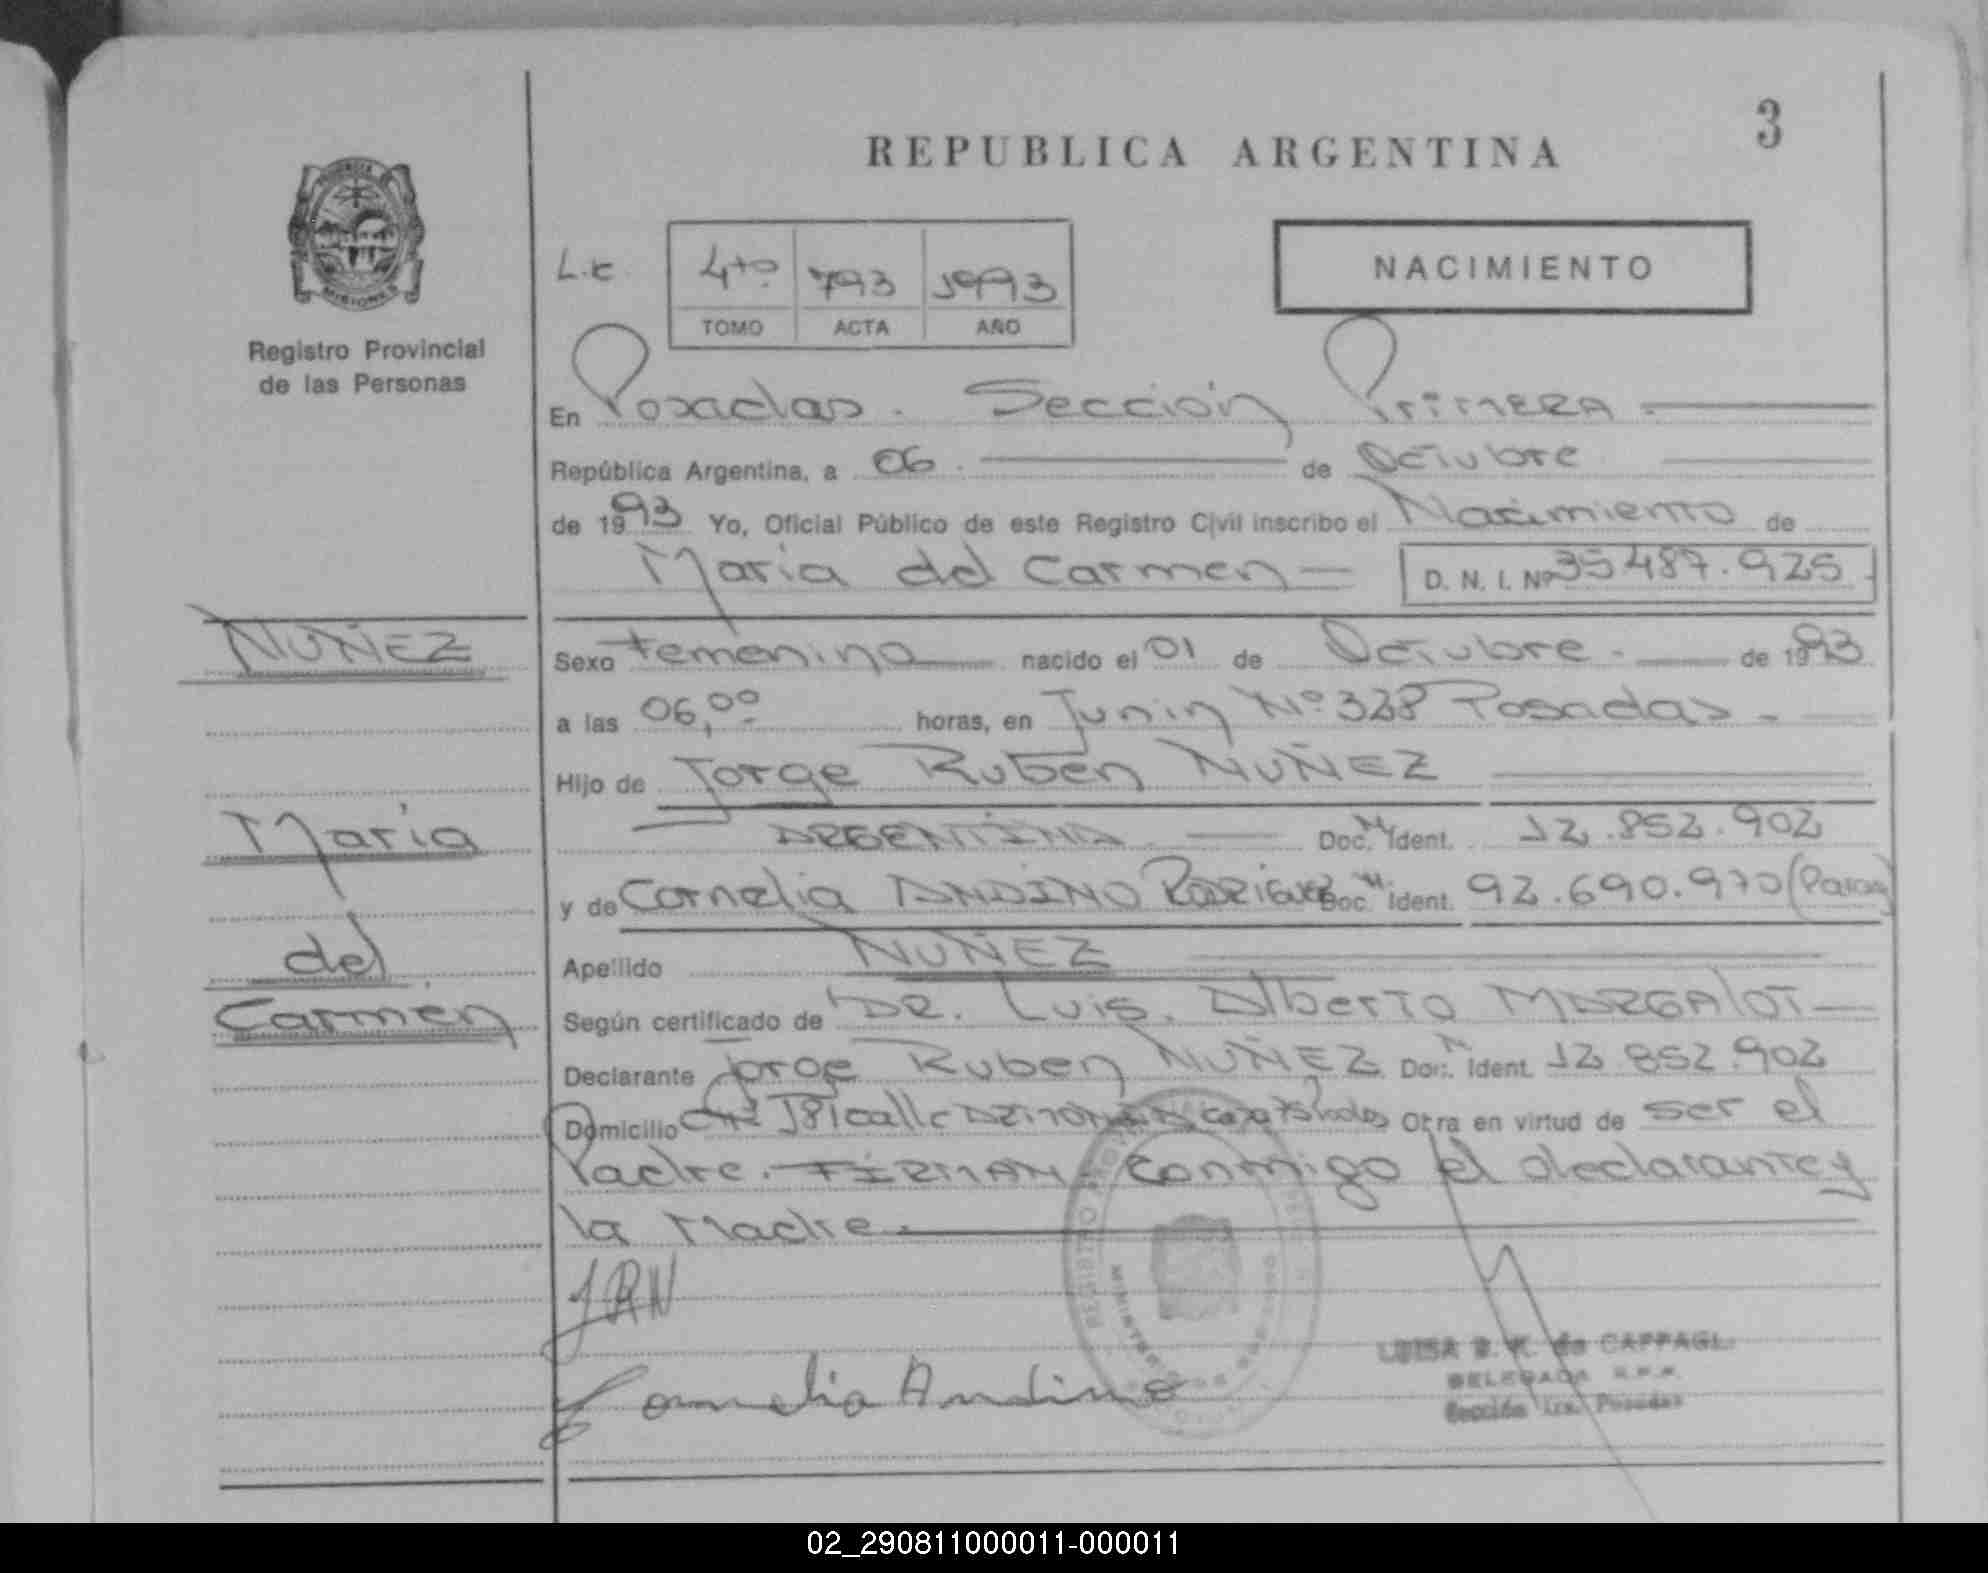 REPUBLICA ARGENTINA
3
PROVINCIA
MISIONES
Registro Provincial
de las Personas
4to 793 1993
TOMO ACTA AÑO
NACIMIENTO
En Posadas. Sección Primera
República Argentina, a 06. de Octubre
de 1993 Yo, Oficial Público de este Registro Civil inscribo el Nacimiento de
María del Carmen D. N. I. Nº 35487.925
NUÑEZ
María
del
Carmen
Sexo femenino nacido el 01 de Octubre. de 1993
a las 06,00 horas, en Junin Nº 328 Posadas.
Hijo de Jorge Ruben NUÑEZ
ARGENTINA Doc. Ident. 12.852.902
y de Cornelia ANDINO Doc. Ident. 92.690.970
Apellido NUÑEZ
Según certificado de DR. Luis. Alberto MARGALOT
Declarante Jorge Ruben NUÑEZ Doc. Ident. 12.852.902
Domicilio 181 calle Otra en virtud de ser el
Padre. FIRMAN conmigo el declarante y
la Madre.
JRN
Cornelia Andino
LUISA de
DELEGADA R.P.P.
Sección 1ra. Posadas
02_290811000011-000011